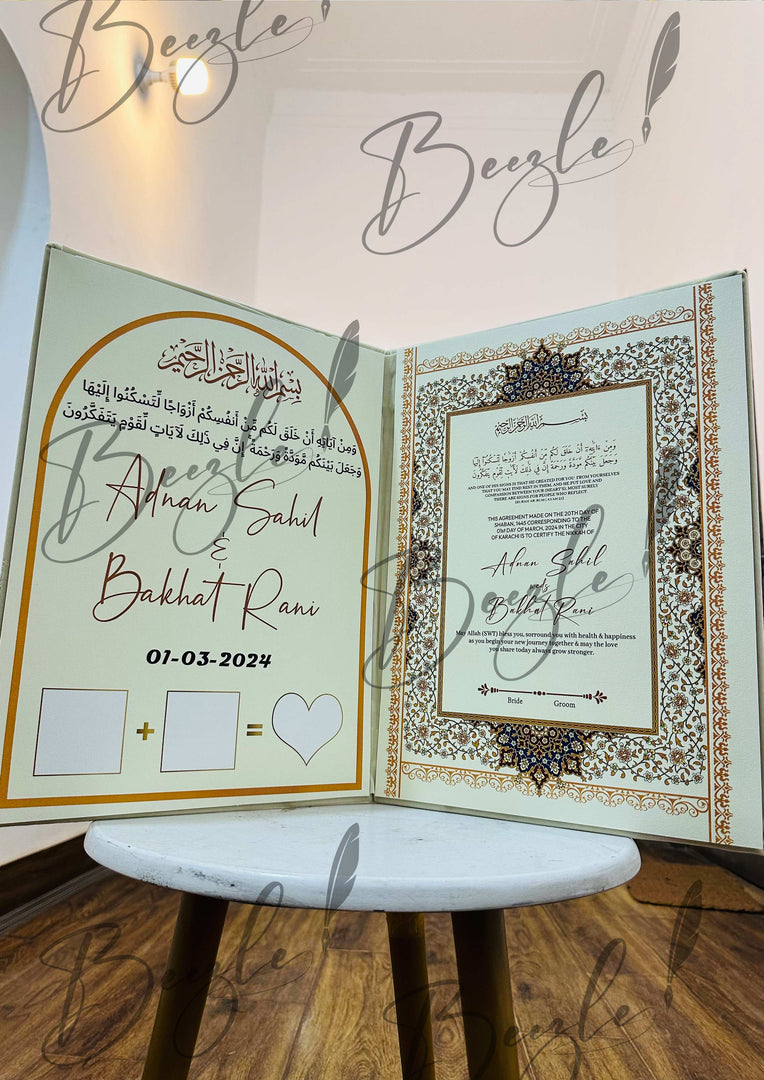 Beezle
Beezle
بِسْمِ اللهِ الرَّحْمٰنِ الرَّحِيْمِ
وَمِنْ آيَاتِهِ أَنْ خَلَقَ لَكُم مِّنْ أَنفُسِكُمْ أَزْوَاجًا لِّتَسْكُنُوا إِلَيْهَا
وَجَعَلَ بَيْنَكُم مَّوَدَّةً وَرَحْمَةً إِنَّ فِي ذَلِكَ لَآيَاتٍ لِّقَوْمٍ يَتَفَكَّرُونَ
Beezle
Adnan Sahil
&
Bakhat Rani
01-03-2024
+ =
بِسْمِ اللهِ الرَّحْمٰنِ الرَّحِيْمِ
وَمِنْ ءَايَٰتِهِۦٓ أَنْ خَلَقَ لَكُم مِّنْ أَنفُسِكُمْ أَزْوَٰجًا لِّتَسْكُنُوٓا۟ إِلَيْهَا
وَجَعَلَ بَيْنَكُم مَّوَدَّةً وَرَحْمَةً إِنَّ فِى ذَٰلِكَ لَءَايَٰتٍ لِّقَوْمٍ يَتَفَكَّرُونَ
AND ONE OF HIS SIGNS IS THAT HE CREATED FOR YOU FROM YOURSELVES
THAT YOU MAY FIND REST IN THEM, AND HE PUT LOVE AND
COMPASSION BETWEEN YOUR (HEARTS). MOST SURELY
THERE ARE SIGNS FOR PEOPLE WHO REFLECT
THIS AGREEMENT MADE ON THE 20TH DAY OF
SHABAN, 1445 CORRESPONDING TO THE
01st DAY OF MARCH, 2024 IN THE CITY
OF KARACHI IS TO CERTIFY THE NIKKAH OF
Adnan Sahil
Beezle
Bakhat Rani
May Allah (SWT) bless you, sorround you with health & happiness
as you begin your new journey together & may the love
you share today always grow stronger.
Bride Groom
Beezle
Beezle
Beezle